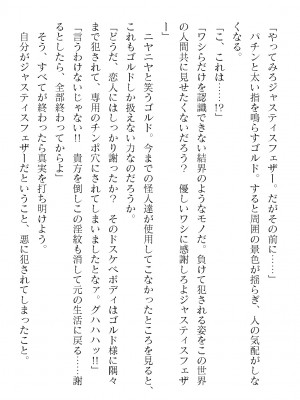 「やってみろジャスティスフェザー。だがその前に……」
パチンと太い指を鳴らすゴルド。すると周囲の景色が揺らぎ、人の気配がしな
くなる。
「こ、これは……!?」
「ワシらだけを認識できない結界のようなモノだ。負けて犯される姿をこの世界
の人間共に見せたくないだろう？　優しいワシに感謝しろよジャスティスフェザ
ー」
ニヤニヤと笑うゴルド。今までの怪人達が使用してこなかったところを見ると、
これもゴルドしか扱えない力なのだろうか。
「どうだ、恋人にはしっかり謝ったか？　そのドスケベボディはゴルド様に隅々
まで犯されて、専用のチンポ穴にされてしまいましたとなァ。グハハハッ!!」
「言うわけないじゃない!!　貴方を倒しこの淫紋も消して元の生活に戻る……謝
るとしたら、全部終わってからよ」
そう、すべてが終わったら真実を打ち明けよう。
自分がジャスティスフェザーだということ、悪に犯されてしまったこと。